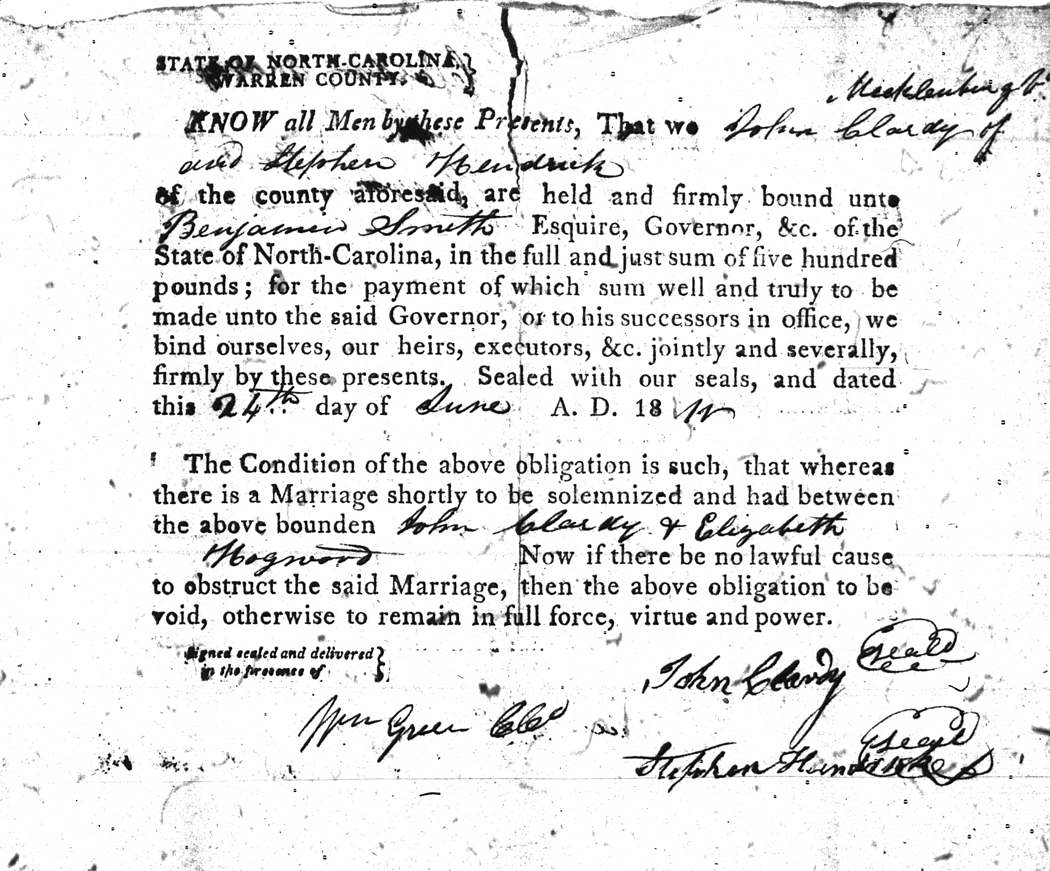 STATE OF NORTH-CAROLINA,
WARREN COUNTY.
Mecklenburg
KNOW all Men by these Presents, That we John Clardy of
and Stephen Hendrick
of the county aforesaid, are held and firmly bound unto
Benjamin Smith Esquire, Governor, &c. of the
State of North-Carolina, in the full and just sum of five hundred
pounds; for the payment of which sum well and truly to be
made unto the said Governor, or to his successors in office, we
bind ourselves, our heirs, executors, &c. jointly and severally,
firmly by these presents. Sealed with our seals, and dated
this 24th day of June A. D. 18
The Condition of the above obligation is such, that whereas
there is a Marriage shortly to be solemnized and had between
the above bounden John Clardy & Elizabeth
Hogwood Now if there be no lawful cause
to obstruct the said Marriage, then the above obligation to be
void, otherwise to remain in full force, virtue and power.
Signed sealed and delivered
in the presence of
John Clardy seal
Wm Green
Stephen Hendrick seal